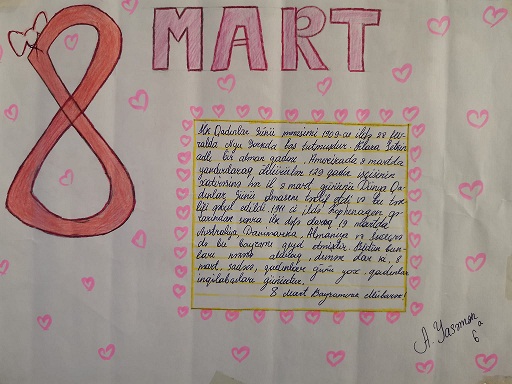 8 MART
İlk Qadınlar Günü mərasimi 1909-cu ildə 28 fev-
ralda Nyu Yorkda baş tutmuşdur. Klara Setkin
adlı bir alman qadını, Amerikada 8 martda
yandırılaraq öldürülən 129 qadın işçisinin
xatirəsinə hər il 8 mart gününü Dünya Qa-
dınlar Günü olmasını təklif etdi və bu tək-
lif qəbul edildi. 1911-ci ildə Kopenhagen qə-
rarından sonra ilk dəfə olaraq 19 martda
Avstraliya, Danimarka, Almaniya və İsveçrə-
də bu bayramı qeyd etmişlər. Bütün bun-
ları nəzərə alaraq, demək olar ki, 8
mart, sadəcə, qadınlar günü yox, qadınlar
inqilabıdır günüdür.
8 Mart Bayramınız Mübarək!
A. Yasəmən
6 a